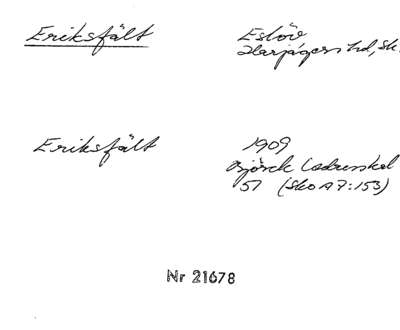 Eriksfält Eslöv
Harjagers hd, Sk.
Eriksfält 1909
Björck Ladusskel
57 (Sko A 7:153)
Nr 21678